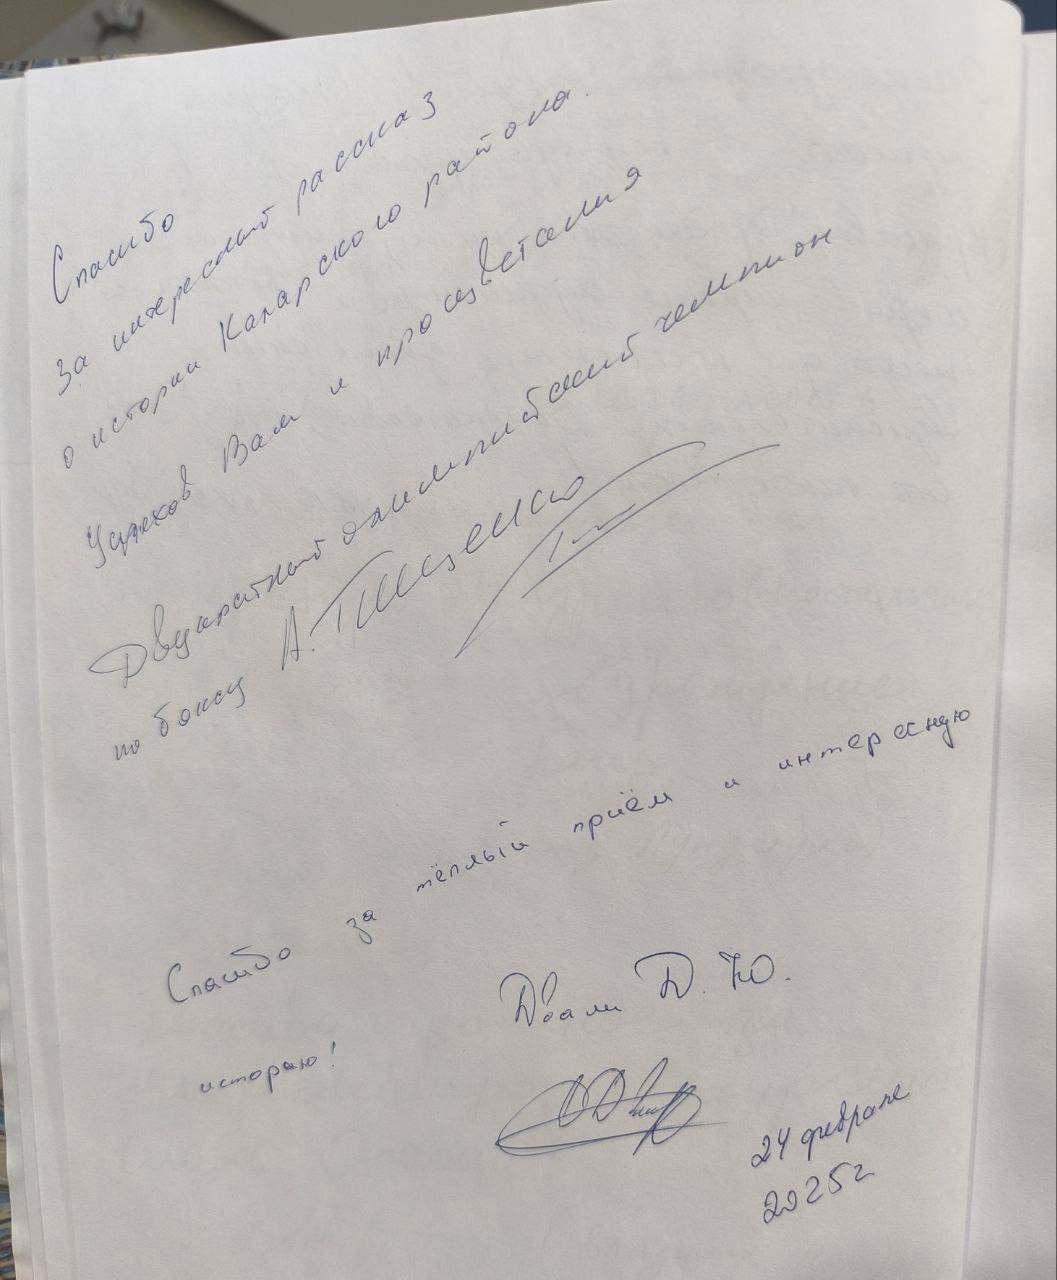 Спасибо
За интересный рассказ
о истории Каларского района.
Успехов Вам и процветания
Двукратный олимпийский чемпион
по боксу А. Тищенко
Спасибо за тёплый приём и интересную
историю!
Двали Д. Ю.
24 февраля
2025г